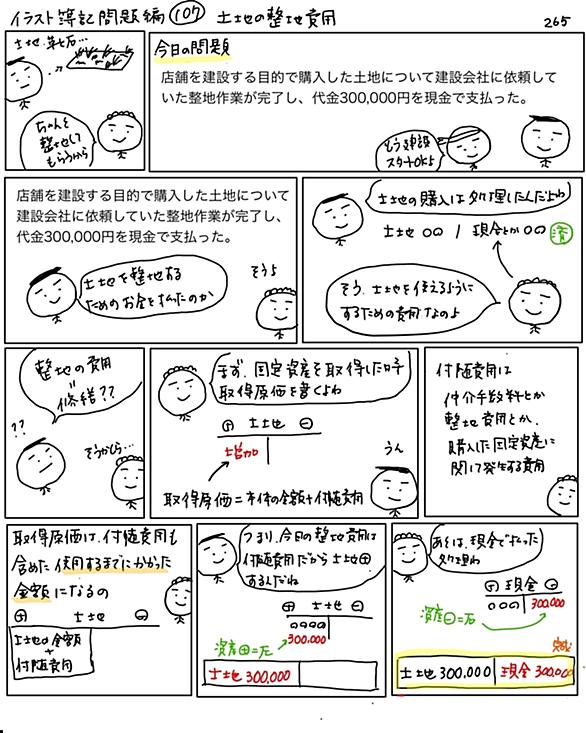 イラスト簿記問題編 107 土地の整地費用
265
土地、草ぼうぼう…
ちゃんと
整地して
もらうから
今日の問題
店舗を建設する目的で購入した土地について建設会社に依頼して
いた整地作業が完了し、代金300,000円を現金で支払った。
もう建設
スタートOKよ
店舗を建設する目的で購入した土地について
建設会社に依頼していた整地作業が完了し、
代金300,000円を現金で支払った。
土地を整地する
ためのお金を払ったのか
そうよ
土地の購入は処理したんだよね
土地 〇〇 / 現金とか〇〇 済
そう、土地を使えるように
するための費用なのよ
整地の費用
=
修繕??
??
そうかしら…
まず、固定資産を取得した時
取得原価を書くよね
⊕ 土地 ⊖
増加
うん
取得原価=本体の金額+付随費用
付随費用は
仲介手数料とか
整地費用とか、
購入した固定資産に
関して発生する費用
取得原価は、付随費用も
含めた使用するまでにかかった
金額になるの
⊕ 土地 ⊖
土地の金額
+
付随費用
つまり、今日の整地費用は
付随費用だから土地⊕
するんだね
⊕ 土地 ⊖
〇〇〇〇
300,000
資産⊕=左
土地 300,000
あとは、現金で払った
処理ね
⊕ 現金 ⊖
〇〇〇 300,000
資産⊖=右
完成
土地 300,000 現金 300,000